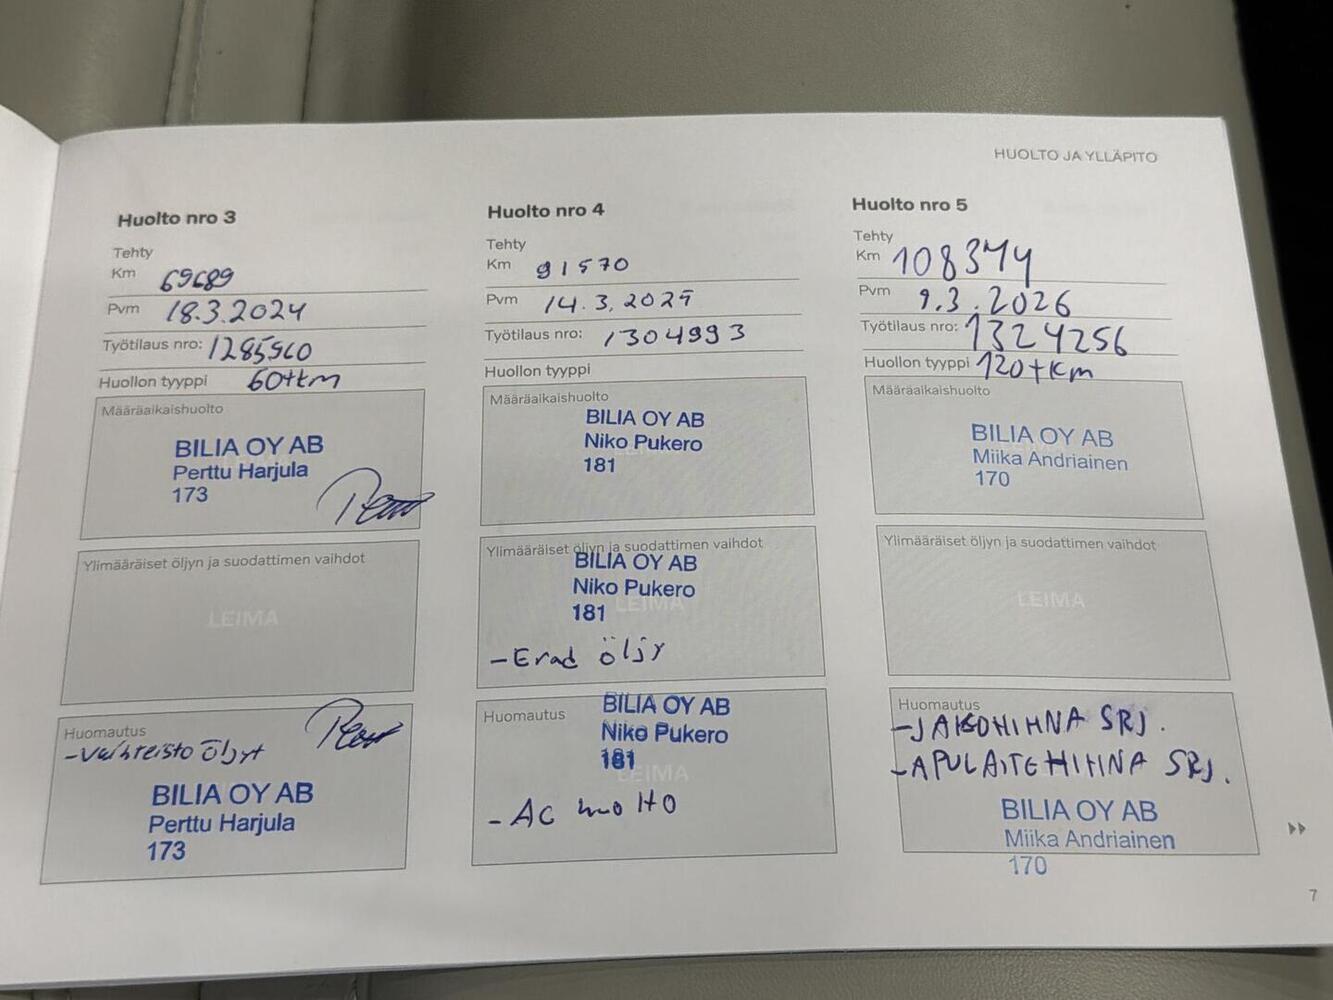 HUOLTO JA YLLÄPITO
Huolto nro 3
Tehty
Km 69689
Pvm 18.3.2024
Työtilaus nro: 1285560
Huollon tyyppi 60tkm
Määräaikaishuolto
BILIA OY AB
Perttu Harjula
173
Ylimääräiset öljyn ja suodattimen vaihdot
LEIMA
Huomautus
-Vaihteisto öljyt
BILIA OY AB
Perttu Harjula
173
Huolto nro 4
Tehty
Km 91570
Pvm 14.3.2025
Työtilaus nro: 1304993
Huollon tyyppi
Määräaikaishuolto
BILIA OY AB
Niko Pukero
181
Ylimääräiset öljyn ja suodattimen vaihdot
BILIA OY AB
Niko Pukero
181
LEIMA
-Erad öljy
Huomautus
BILIA OY AB
Niko Pukero
181
LEIMA
-AC huolto
Huolto nro 5
Tehty
Km 108344
Pvm 9.3.2026
Työtilaus nro: 1324256
Huollon tyyppi 120tkm
Määräaikaishuolto
BILIA OY AB
Miika Andriainen
170
Ylimääräiset öljyn ja suodattimen vaihdot
LEIMA
Huomautus
-JAKOHIHNA SRJ.
-APULAITEHIHNA SRJ.
BILIA OY AB
Miika Andriainen
170
7